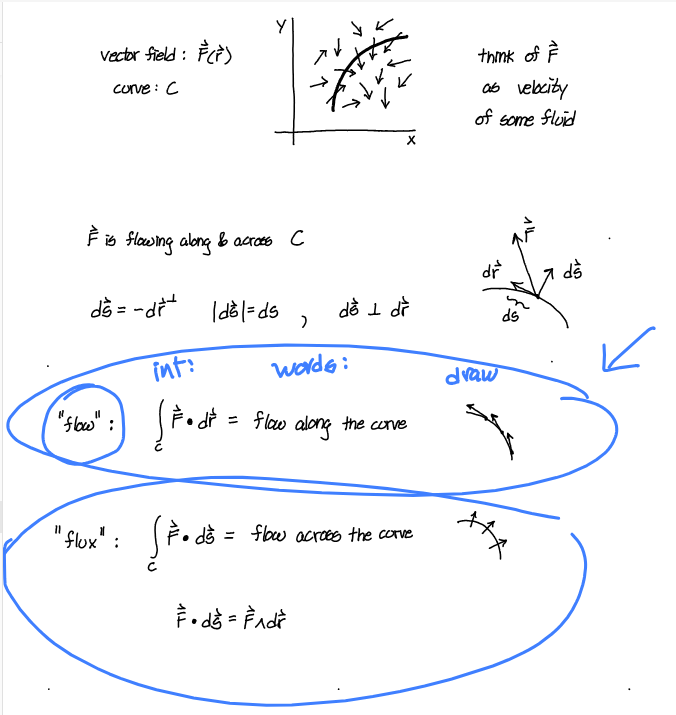 y
x
vector field : F⃗(r⃗)
curve : C
think of F⃗
as velocity
of some fluid
F⃗ is flowing along & across C
ds⃗ = -dr⃗^⊥ |ds⃗| = ds , ds⃗ ⊥ dr⃗
F⃗
dr⃗ ds⃗
ds
int: words: draw
"flow" : ∫_C F⃗ • dr⃗ = flow along the curve
"flux" : ∫_C F⃗ • ds⃗ = flow across the curve
F⃗ • ds⃗ = F⃗ ∧ dr⃗